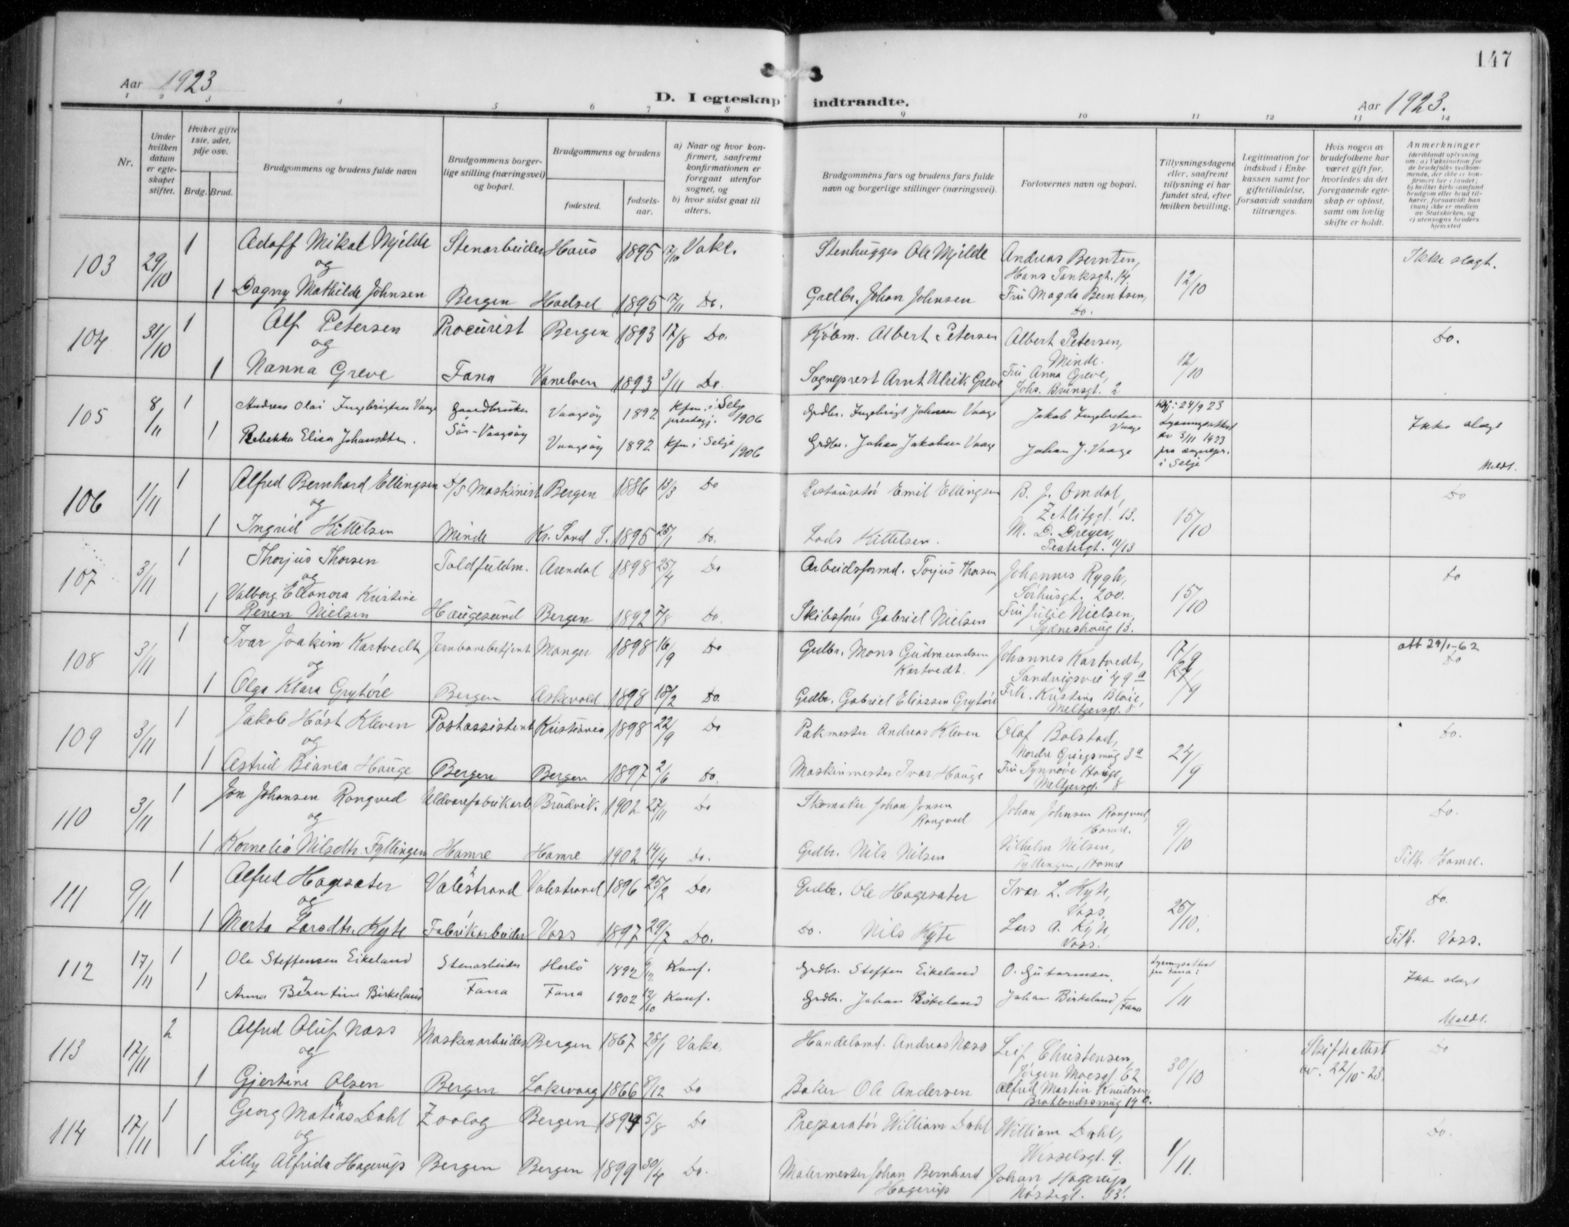 147
Aar 1923
D. I egteskap indtraadte.
Aar 1923.
1 2 3 4 5 6 7 8 9 10 11 12 13 14
Nr.
Under hvilken datum er egteskapet stiftet.
Hvilket gifte 1ste, 2det, 3dje osv.
Brdg. Brud.
Brudgommens og brudens fulde navn
Brudgommens borgerlige stilling (næringsvei) og bopæl.
Brudgommens og brudens
fødested.
fødselsaar.
a) Naar og hvor konfirmert, saafremt konfirmationen er foregaat utenfor sognet, og
b) hvor sidst gaat til alters.
Brudgommens fars og brudens fars fulde navn og borgerlige stillinger (næringsvei).
Forlovernes navn og bopæl.
Tillysningsdagene eller, saafremt tillysning ei har fundet sted, efter hvilken bevilling.
Legitimation for indskud i Enkekassen samt for giftetilladelse, forsaavidt saadan tiltrænges.
Hvis nogen av brudefolkene har været gift før, hvorledes da det foregaaende egteskap er opløst, samt om lovlig skifte er holdt.
Anmerkninger
103 29/10 1 Adolf Mikal Mjelde Stenarbeider Haus 1895 Vake. Stenhugger Ole Mjelde Andreas Berntsen, Hans Tanksgt. 14, 12/10 Ikke slægt.
og
1 Dagny Mathilde Johnsen Bergen Hadsel 1895 Do. Gaelbr. Johan Johnsen Fru Magda Berntsen, do.
104 31/10 1 Alf Petersen Procurist Bergen 1893 17/8 Do. Kjøbm. Albert Petersen Albert Petersen, Minde. 12/10 Do.
og
1 Nanna Greve Fana Vanelven 1893 3/11 Do. Sogneprest Arnt Ulrik Greve Fru Anna Greve, Johs. Brunsgt. 2
105 8/11 1 Andreas Olai Ingebrigtsen Vaage Gaardbruker Vaagsøy 1892 Kfm. i Selje prestegj. 1906 Grdbr. Ingebrigt Johnsen Vaage Jakob Ingebrigtsen Vaage Ikke slægt
1 Rebekka Elisa Johansdtr. Sør-Vaagsøy Vaagsøy 1892 Kfm i Selje 1906 Grdbr. Johan Jakobsen Vaage Johan J. Vaage i Selje Meldt.
106 1/11 1 Alfred Bernhard Ellingsen D/S Maskinist Bergen 1886 13/3 Do Restauratør Emil Ellingsen B. J. Omdal, Zetlitzgt. 13. 15/10 Do
og
1 Ingrid Kittelsen Minde Kr. Sand S. 1895 25/1 Do. Lods Kittelsen. M. D. Dreyer, Teatergt. 11/13
107 3/11 1 Thorjus Thorsen Toldfuldm. Arendal 1898 25/4 Do Arbeidsformd. Torjus Thorsen Johannes Rygh, 15/10 Do
og
1 Valborg Ellonora Kristine Renen Nielsen Haugesund Bergen 1892 7/8 Do. Skibsfører Gabriel Nielsen Fru Julie Nielsen, Sydneshaug 15.
108 3/11 1 Ivar Joakim Kartvedt Jernbanebetjent Manger 1898 16/9 Do Grdbr. Mons Gudmundsen Kartvedt. Johannes Kartvedt, Sandviksvei 49 a 17/9 att 29/1-62 Do
og
1 Olga Klara Grytøre Bergen Askevold 1898 18/2 Do. Grdbr. Gabriel Eliassen Grytøre Frk. Kristine Meltzersgt. 8
109 3/11 1 Jakob Høst Kleven Postassistent Kristiania 1898 22/9 Do Pakmester Andreas Kleven Olaf Bolstad, 24/9 Do.
og
1 Astrid Bianca Hauge Bergen Bergen 1897 2/6 Do. Maskinmester Ivar Hauge Fru Synnøve Hauge, Meltzersgt. 8
110 3/11 1 Jon Johansen Rongved Uldvarefabrikarb Bruvik. 1902 27/11 Do Skomaker Johan Jonsen Rongved Johan Johnsen Rongved, Hamre. 9/10 Do.
og
1 Kornelia Nilsdtr. Fyllingen Hamre Hamre 1902 14/4 Do. Grdbr. Nils Nilsen Vilhelm Nilsen, Fyllingen, Hamre Tilh. Hamre.
111 9/11 1 Alfred Hagesæter Valestrand Valestrand 1896 25/2 Do. Grdbr. Ole Hagesæter Ivar L. Kyte, Voss. 25/10. Do.
og
1 Marta Larsdtr. Kyte Fabrikarbeider Voss 1897 29/7 Do. do. Nils Kyte Lars A. Kyte, Voss. Tilh. Voss.
112 17/11 1 Ole Steffensen Eikeland Stenarbeider Herlø 1892 Konf. Grdbr. Steffen Eikeland Ikke slægt
1 Anna Berentine Birkeland Fana Fana 1902 12/10 Konf. Grdbr. Johan Birkeland Johan Birkeland / Fana 1/11 Meldt.
113 17/11 2 Alfred Oluf Næss Maskinarbeider Bergen 1867 28/1 Vake. Handelsmd. Andreas Næss Leif Christensen, Jørgen Moesgt 62 30/10 Skifteattest av. 22/10-23. Do
og
1 Gjertine Olsen Bergen Laksevaag 1866 Do Baker Ole Andersen Alfred Martin Knudsen
114 17/11 1 Georg Matias Dahl Zoolog Bergen 1894 5/8 Do Præparatør William Dahl William Dahl, Wesselsgt. 9. 1/11. Do.
og
1 Lilly Alfrida Hagerup Bergen Bergen 1899 30/4 Do. Malermester Johan Bernhard Hagerup Johan Hagerup,